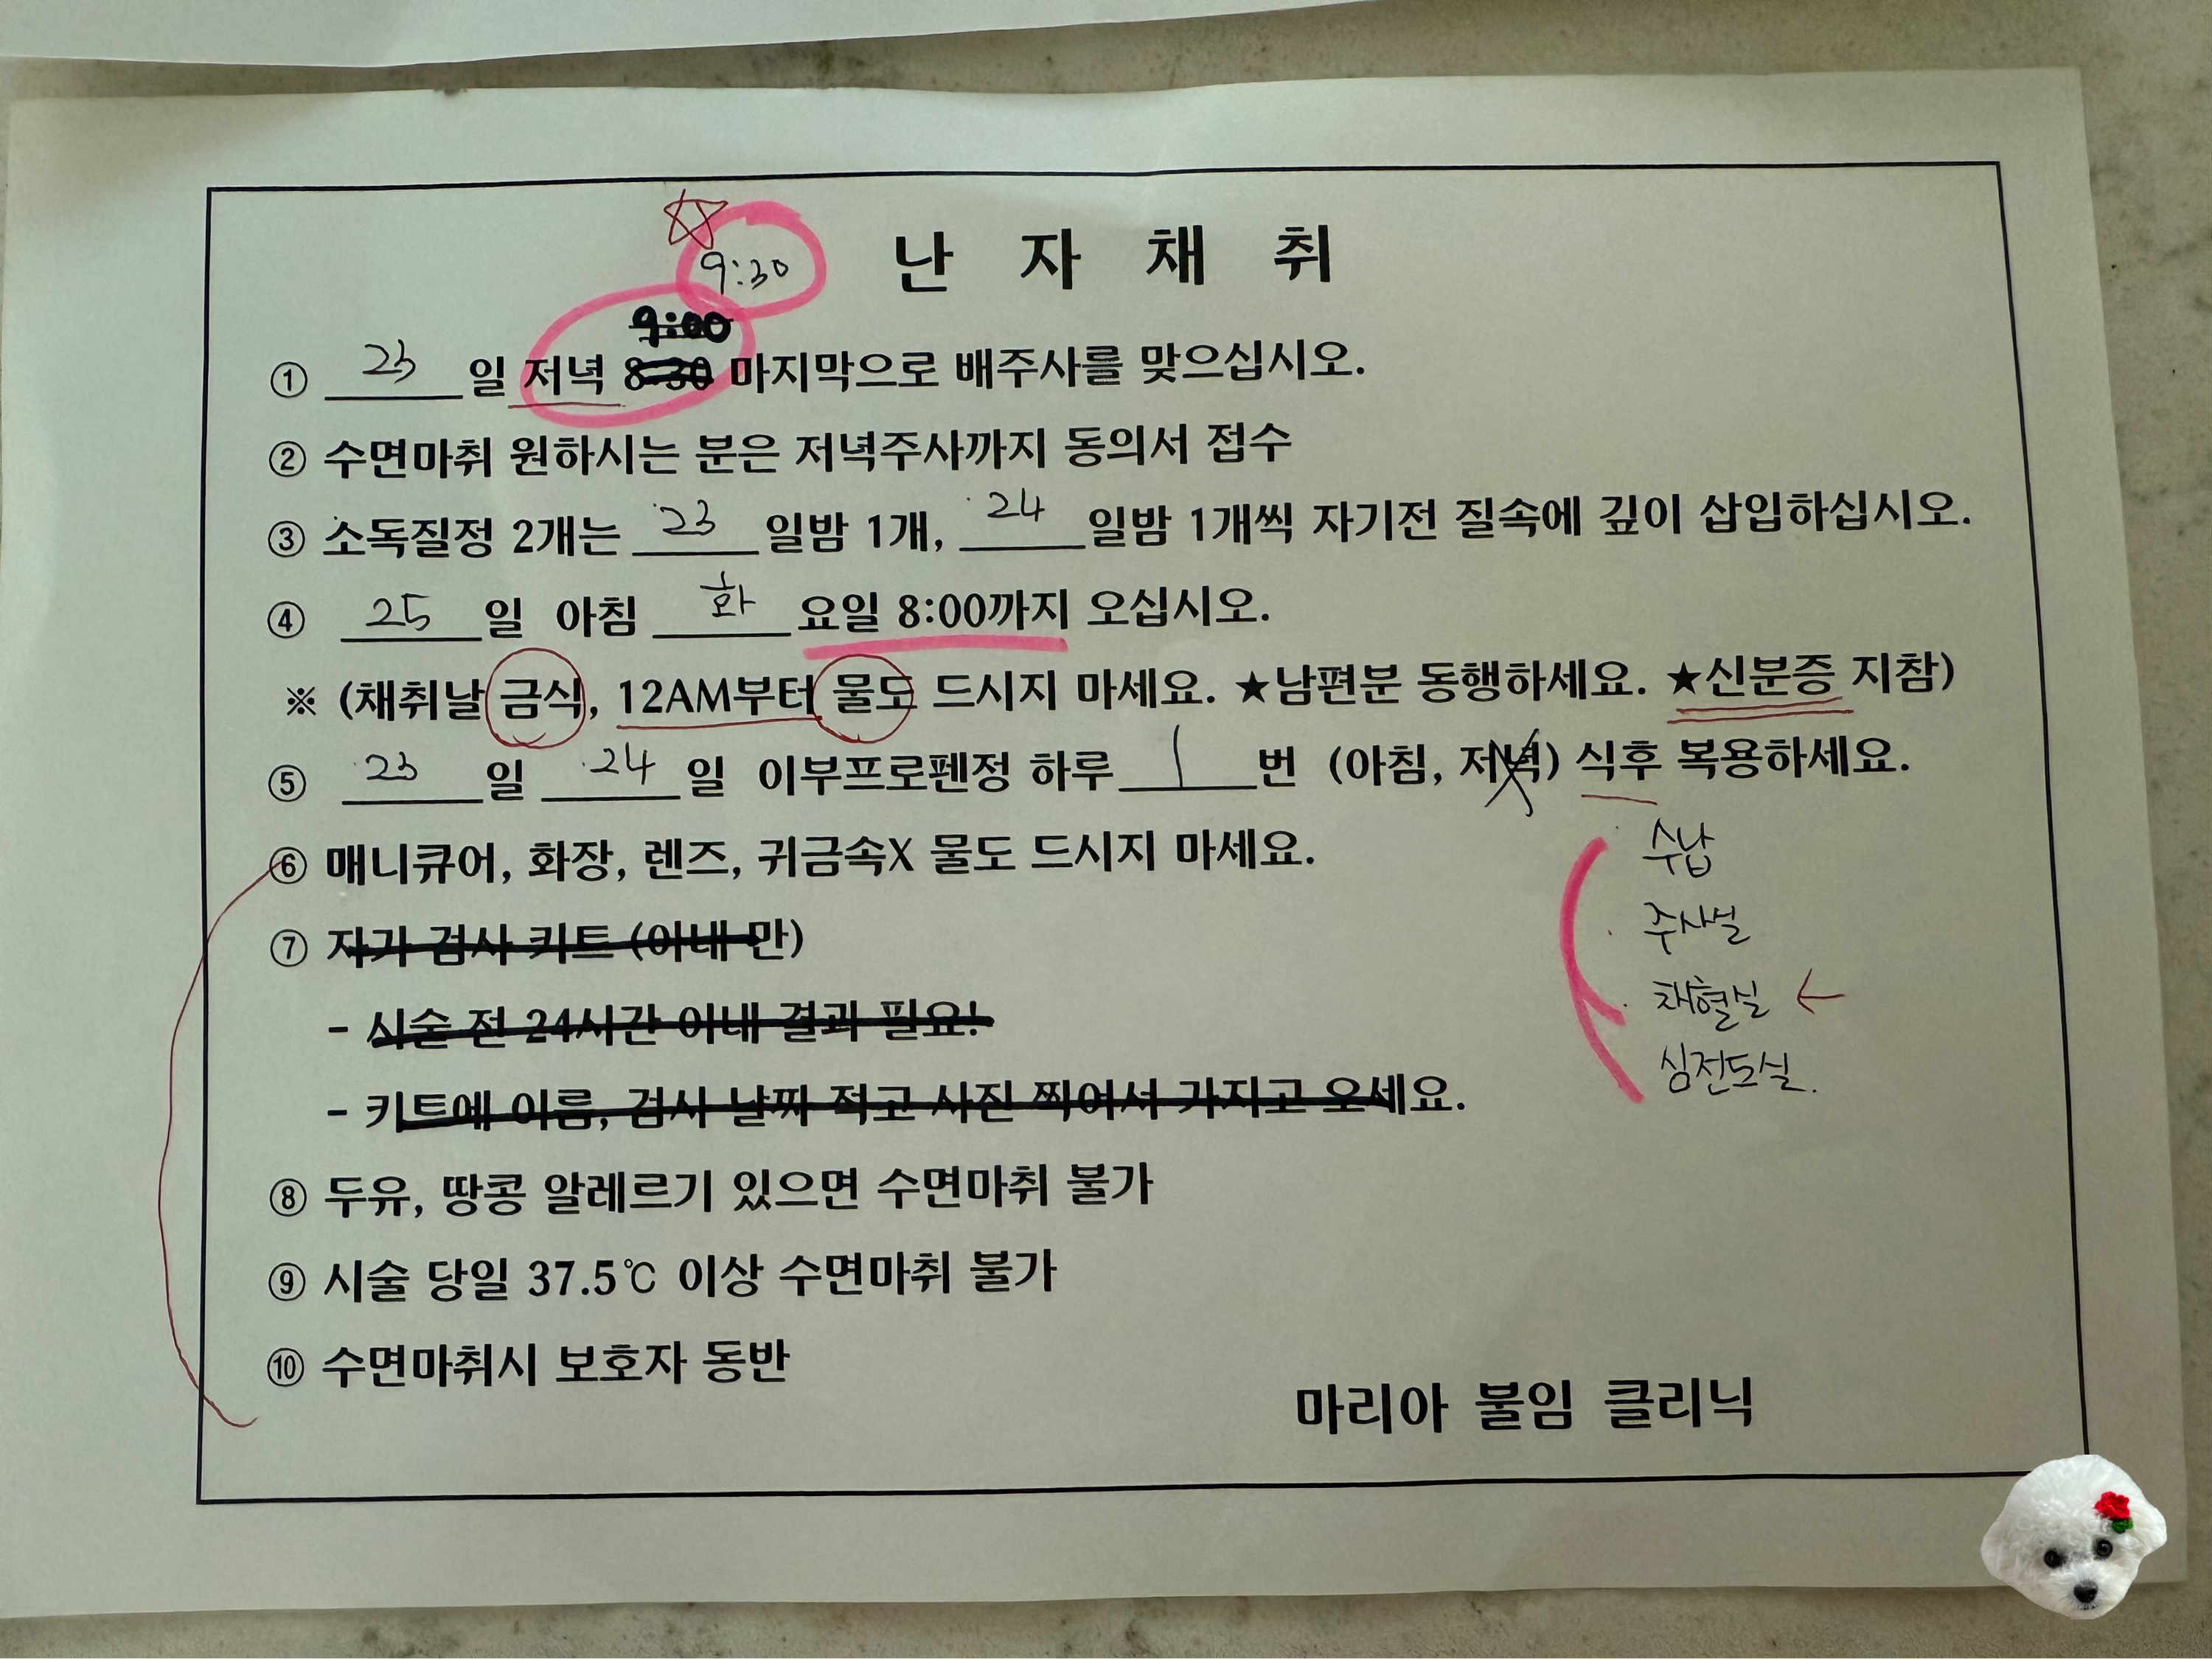 난 자 채 취
9:30
9:00
① 23일 저녁 8:30 마지막으로 배주사를 맞으십시오.
② 수면마취 원하시는 분은 저녁주사까지 동의서 접수
③ 소독질정 2개는 23일밤 1개, 24일밤 1개씩 자기전 질속에 깊이 삽입하십시오.
④ 25일 아침 화요일 8:00까지 오십시오.
※ (채취날 금식, 12AM부터 물도 드시지 마세요. ★남편분 동행하세요. ★신분증 지참)
⑤ 23일 24일 이부프로펜정 하루 1번 (아침, 저녁) 식후 복용하세요.
⑥ 매니큐어, 화장, 렌즈, 귀금속X 물도 드시지 마세요.
⑦ 자가 검사 키트 (아내 만)
- 시술 전 24시간 이내 결과 필요!
- 키트에 이름, 검사 날짜 적고 사진 찍어서 가지고 오세요.
⑧ 두유, 땅콩 알레르기 있으면 수면마취 불가
⑨ 시술 당일 37.5℃ 이상 수면마취 불가
⑩ 수면마취시 보호자 동반
수납
주사실
채혈실 ←
심전도실.
마리아 불임 클리닉